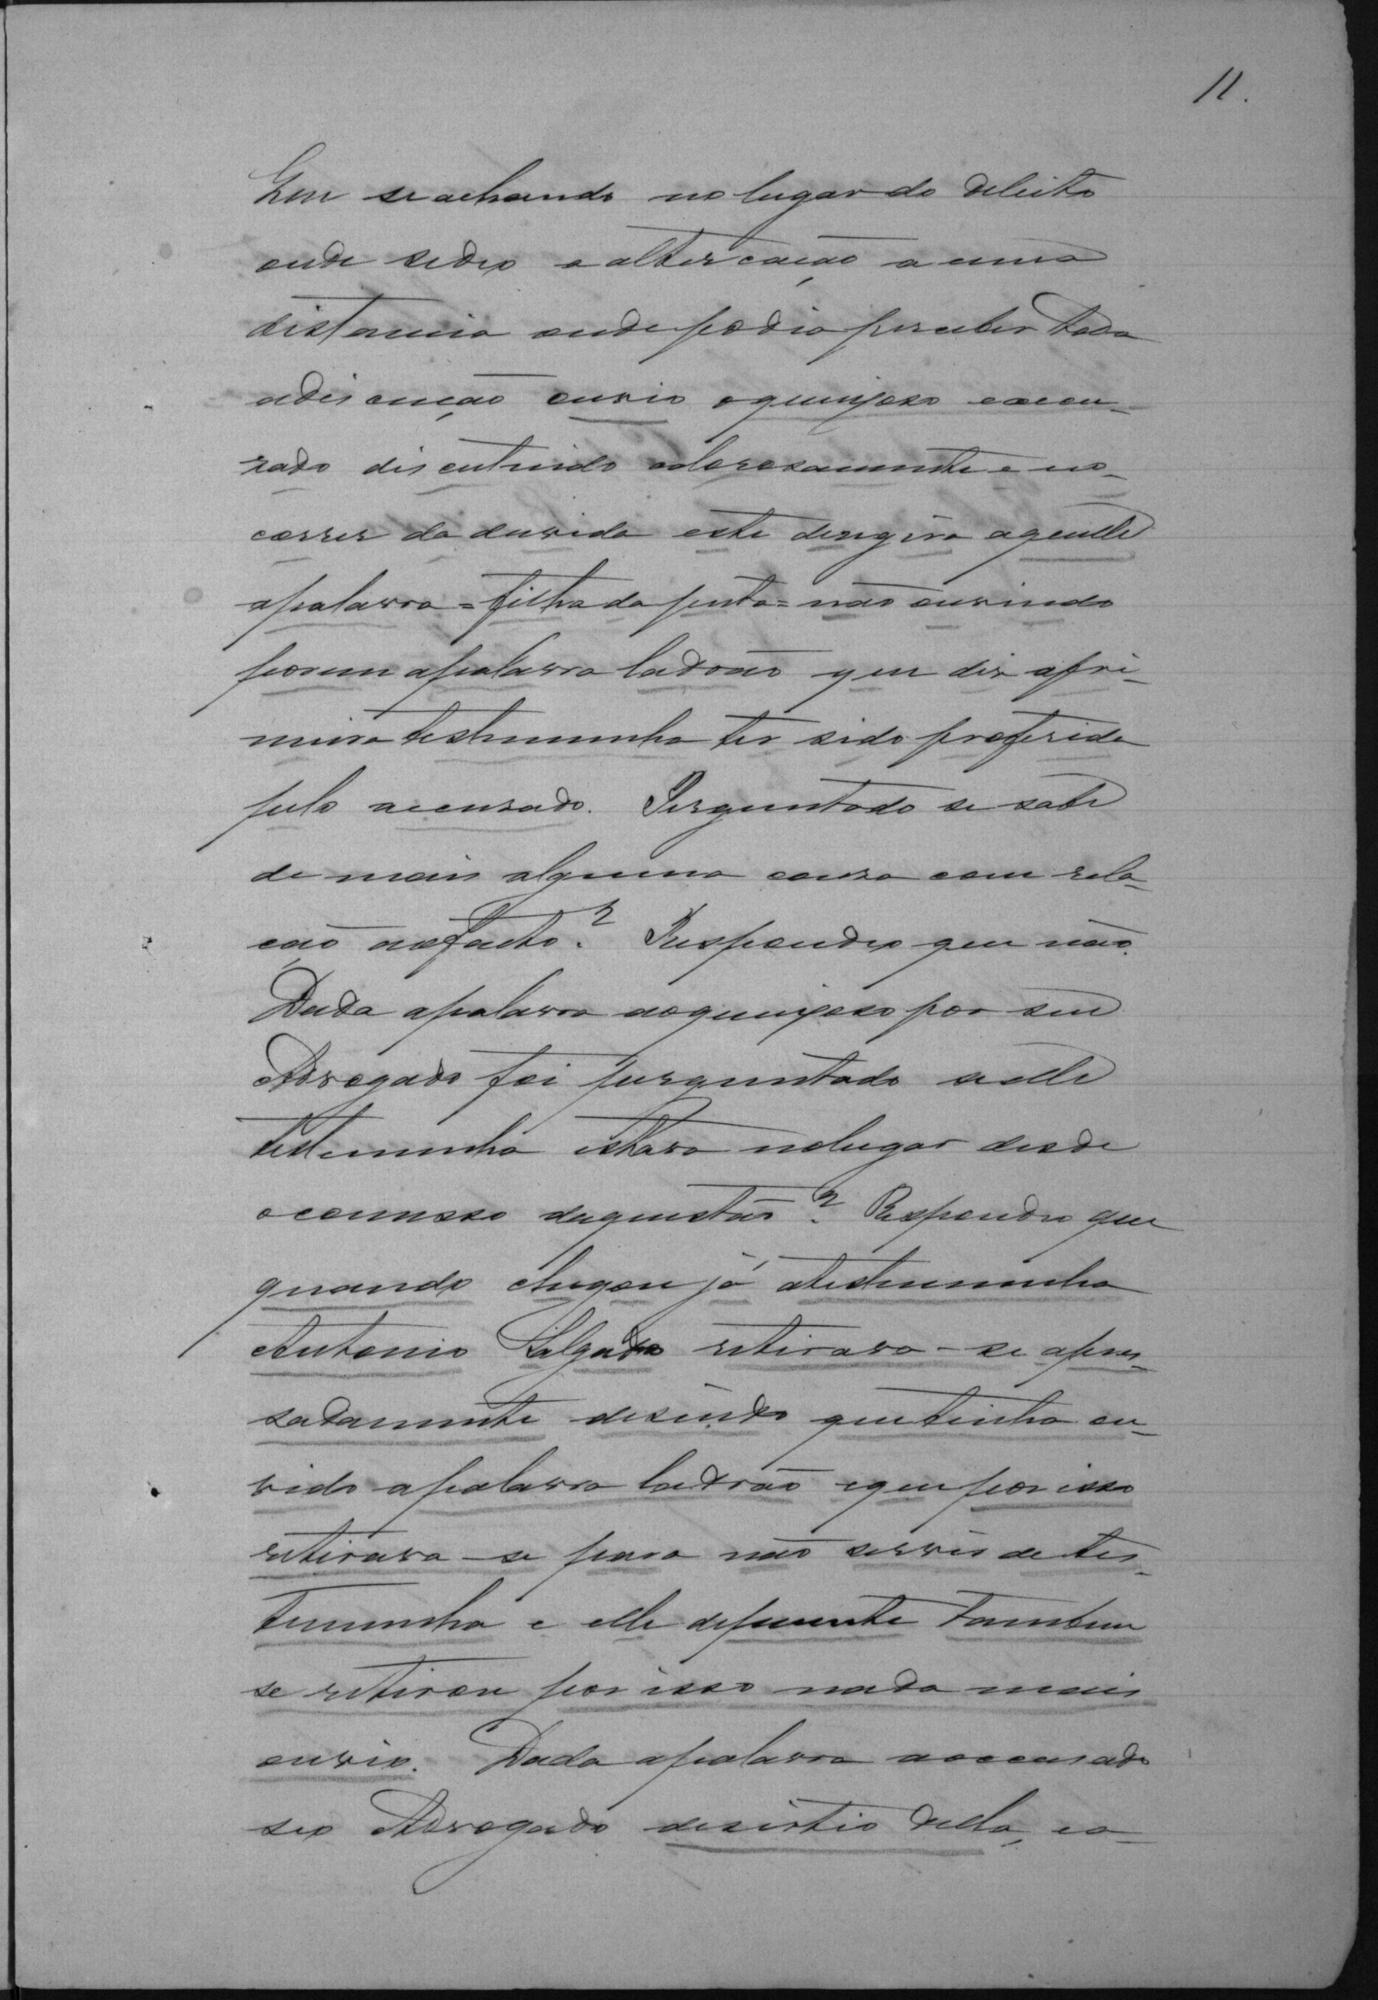 11.
Que se achando no lugar do delicto
onde se deo a altercação a uma
distancia onde podia perceber toda
a discução ouvio o queixoso e accu-
zado discutindo calorosamente e no
correr da duvida este deregiro aquelle
a palavra = filho da puta = não ouvindo
porem a palavra ladrão que dis a pri-
meira testemunha ter sido proferida
pelo accusado. Perguntado se sabe
de mais alguma cousa com rela-
ção ao facto? Respondeo que não.
Dada a palavra ao queixoso por seu
Advogado foi perguntado se elle
testemunha estava no lugar desde
o comesso da questão? Respondeo que
quando chegou já a testemunha
Antonio Salgado retirava-se apres-
sadamente desendo que tinha ou-
vido a palavra ladrão e que por isso
retirava-se para não servir de tes-
temunha e elle depuente tambem
se retirou por isso nada mais
ouvio. Dada a palavra ao accusado
seo Advogado desistio della, co-